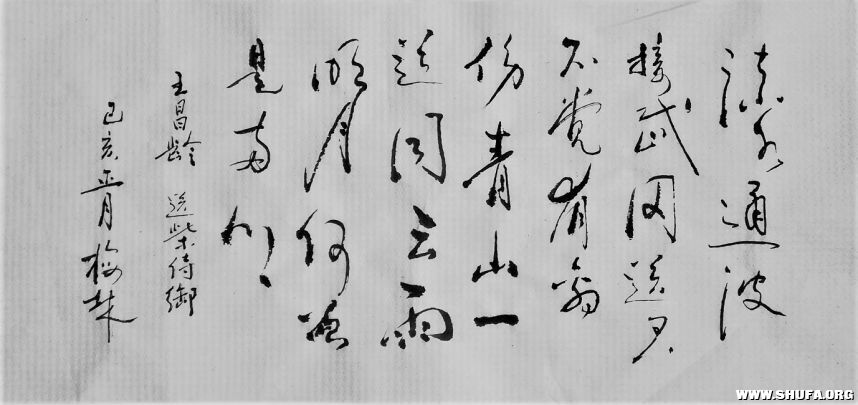 流水通波
接武冈送君
不觉有离
伤青山一
道同云雨
明月何曾
是两乡
王昌龄 送柴侍御
己亥正月梅
WWW.SHUFA.ORG